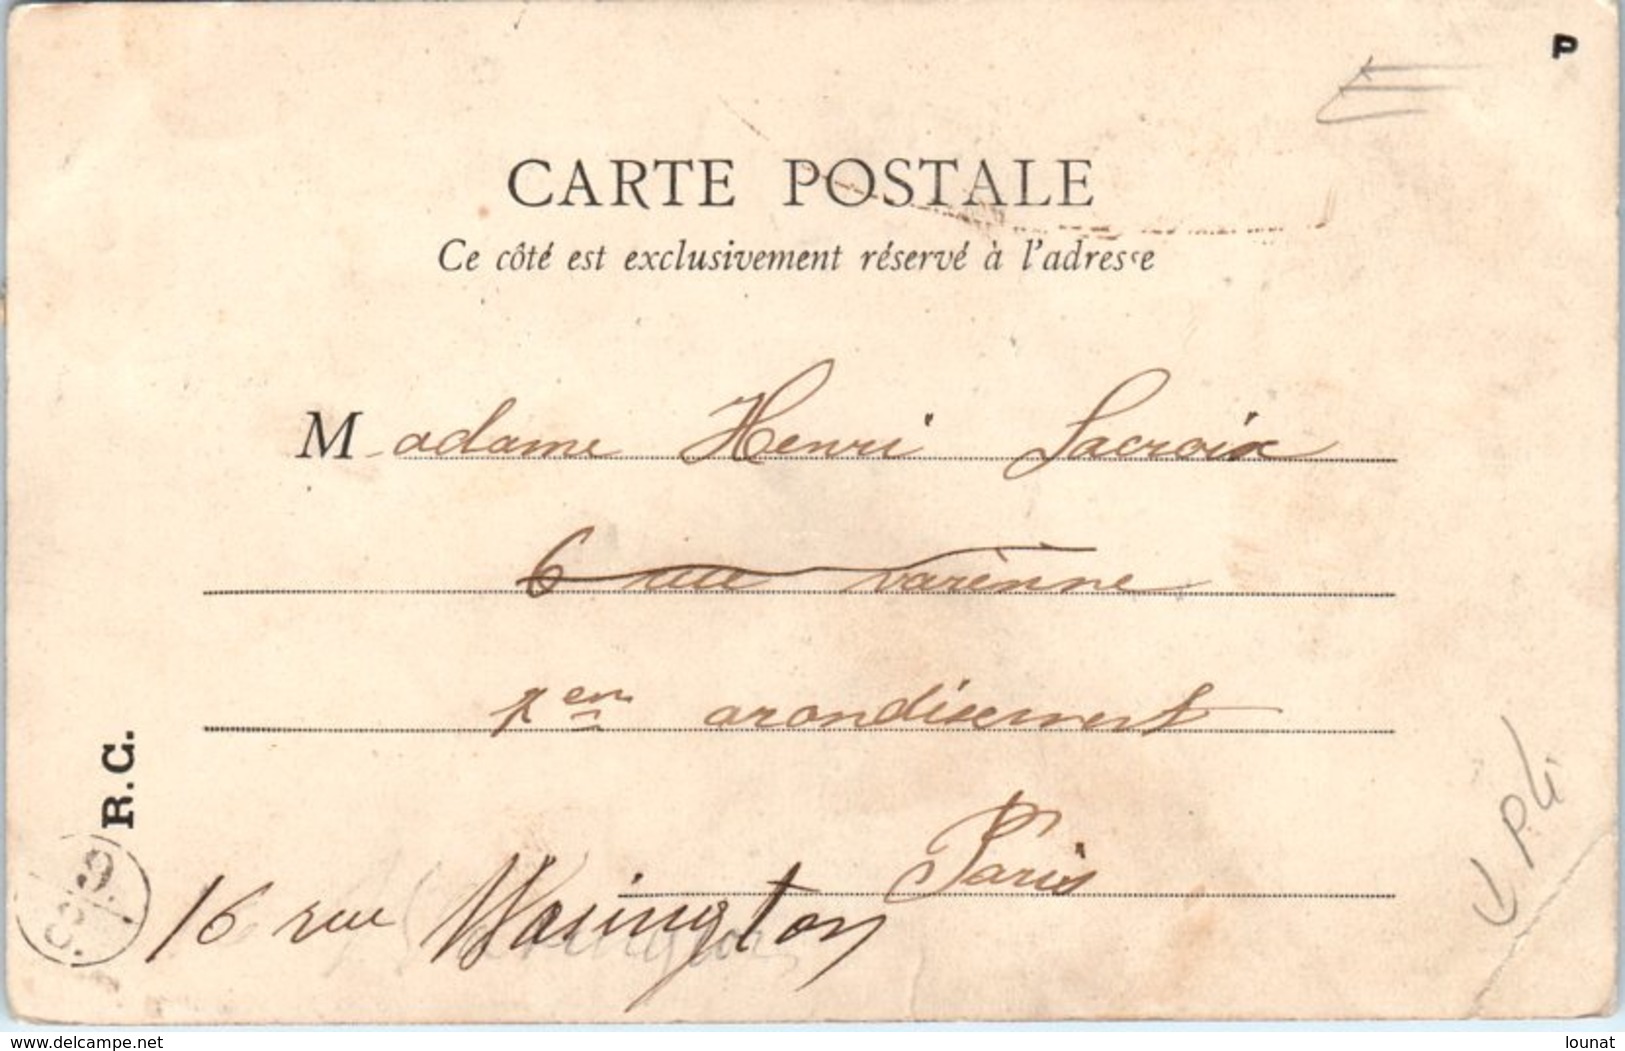 P
CARTE POSTALE
Ce côté est exclusivement réservé à l'adresse
Madame Henri Lacroix
6 rue varènne
arondisement
Paris
16 rue Wasington
R.C.
delcampe.net
lounat